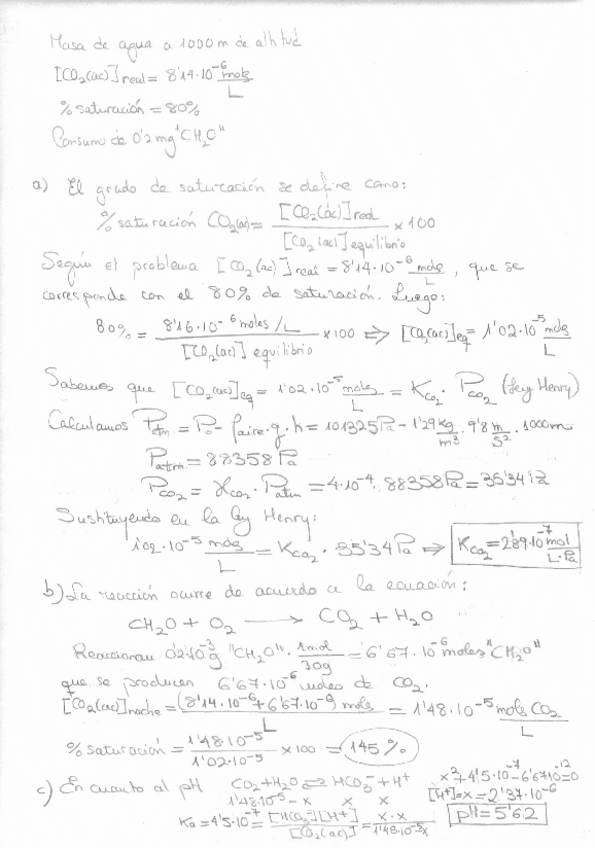 Masa de agua a 1000 m de altitud
[CO₂(ac)]real = 8'14·10⁻⁶ moles/L
% saturación = 80%
Consumo de 0'2 mg "CH₂O"
a) El grado de saturación se define como:
% saturación CO₂(ac) = [CO₂(ac)]real / [CO₂(ac)]equilibrio × 100
Según el problema [CO₂(ac)]real = 8'14·10⁻⁶ moles/L, que se
corresponde con el 80% de saturación. Luego:
80% = 8'16·10⁻⁶ moles/L / [CO₂(ac)] equilibrio × 100 ⇒ [CO₂(ac)]eq = 1'02·10⁻⁵ moles/L
Sabemos que [CO₂(ac)]eq = 1'02·10⁻⁵ moles/L = K_CO₂ · P_CO₂ (Ley Henry)
Calculamos Patm = P₀ - ρaire·g·h = 101325 Pa - 1'29 kg/m³ · 9'8 m/s² · 1000 m
Patm = 88358 Pa
P_CO₂ = X_CO₂ · Patm = 4·10⁻⁴ · 88358 Pa = 35'34 Pa
Sustituyendo en la ley Henry:
1'02·10⁻⁵ moles/L = K_CO₂ · 35'34 Pa ⇒ K_CO₂ = 2'89·10⁻⁷ mol/L·Pa
b) La reacción ocurre de acuerdo a la ecuación:
CH₂O + O₂ ⟶ CO₂ + H₂O
Reaccionan 0'2·10⁻³ g "CH₂O" · 1mol/30g = 6'67·10⁻⁶ moles "CH₂O"
que se producen 6'67·10⁻⁶ moles de CO₂.
[CO₂(ac)]noche = (8'14·10⁻⁶ + 6'67·10⁻⁶) mols / L = 1'48·10⁻⁵ mols CO₂/L
% saturación = 1'48·10⁻⁵ / 1'02·10⁻⁵ × 100 = 145%
c) En cuanto al pH CO₂ + H₂O ⇄ HCO₃⁻ + H⁺ x² + 4'5·10⁻⁷ - 6'67·10⁻¹² = 0
1'48·10⁻⁵ - x x x [H⁺] = x = 2'37·10⁻⁶
Ka = 4'5·10⁻⁷ = [HCO₃⁻][H⁺] / [CO₂(ac)] = x·x / 1'48·10⁻⁵-x pH = 5'62